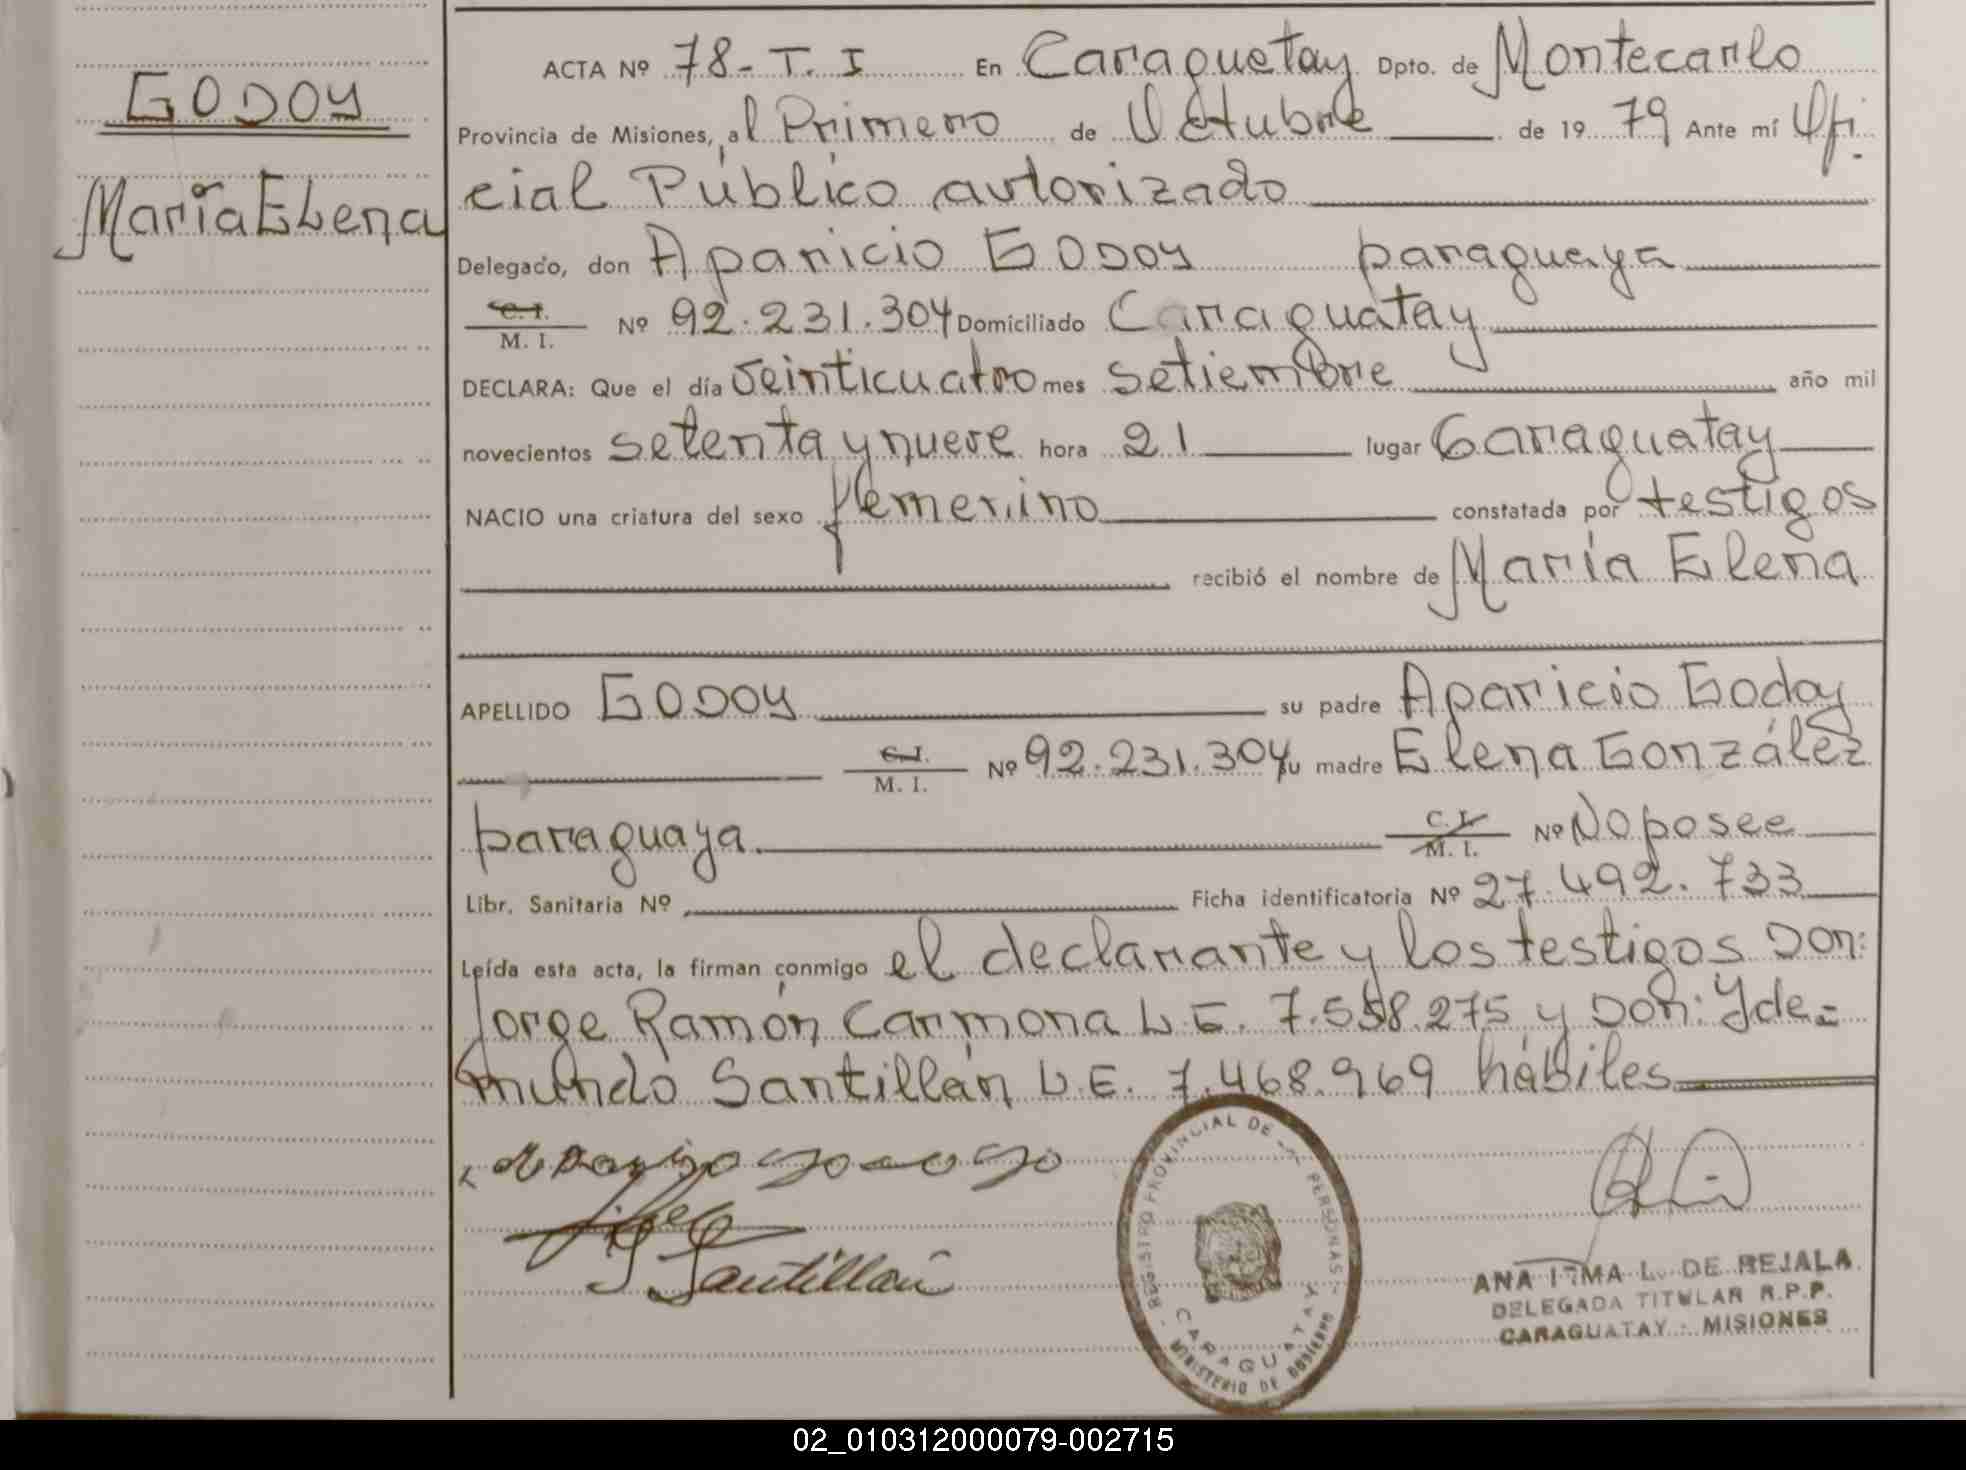 GODOY
María Elena
ACTA Nº 78-T.I En Caraguetay Dpto. de Montecarlo
Provincia de Misiones, al Primero de Octubre de 1979 Ante mí Ofi
cial Público autorizado
Delegado, don Aparicio GODOY paraguaya
C.I.
M. I. Nº 92.231.304 Domiciliado Caraguatay
DECLARA: Que el día veinticuatro mes setiembre año mil
novecientos setenta y nueve hora 21 lugar Caraguatay
NACIO una criatura del sexo femenino constatada por testigos
recibió el nombre de María Elena
APELLIDO GODOY su padre Aparicio Godoy
C.I.
M. I. Nº 92.231.304 su madre Elena González
paraguaya. C. I.
M. I. Nº No posee
Libr. Sanitaria Nº Ficha identificatoria Nº 27.492.733
Leída esta acta, la firman conmigo el declarante y los testigos Don:
Jorge Ramón Carmona L.E. 7.558.275 y Don: Yde=
mundo Santillán L.E. 7.468.969 hábiles
Santillan
REGISTRO PROVINCIAL DE PERSONAS
CARAGUATAY
MINISTERIO DE GOBIERNO
ANA IRMA L. DE REJALA
DELEGADA TITULAR R.P.P.
CARAGUATAY - MISIONES
02_010312000079-002715